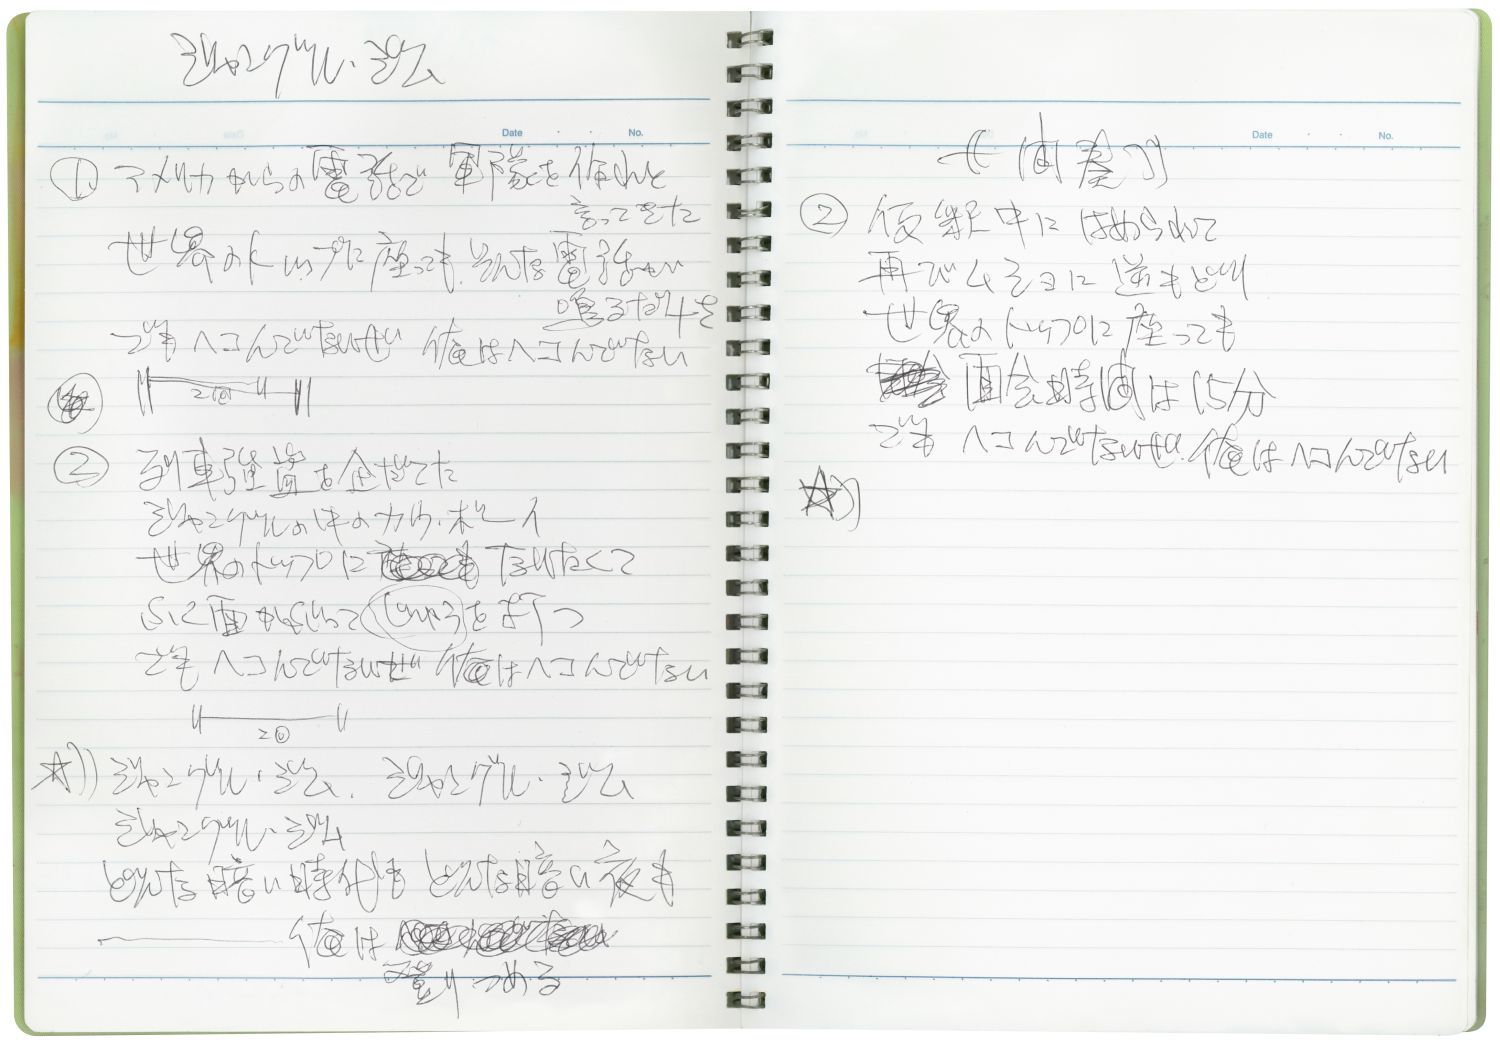 ジャングル・ジム
Date No.
① アメリカからの電話で 軍隊を作れと
言ってきた
世界のトップに座っても そんな電話が
鳴るだけを
でも ヘコんでないぜ 俺はヘコんでない
2回
② 列車強盗を企だてた
ジャングルの中のカウ・ボーイ
世界のトップに なりたくて
でも ヘコんでないぜ 俺はヘコんでない
2回
☆)) ジャングル・ジム. ジャングル・ジム
ジャングル・ジム
どんな暗い時代も どんな暗い夜も
俺は
登りつめる
Date No.
(間奏)
② 仮釈中に はめられて
再びムショに逆もどり
世界のトップに座っても
面会時間は15分
でも ヘコんでないぜ 俺はヘコんでない
☆))